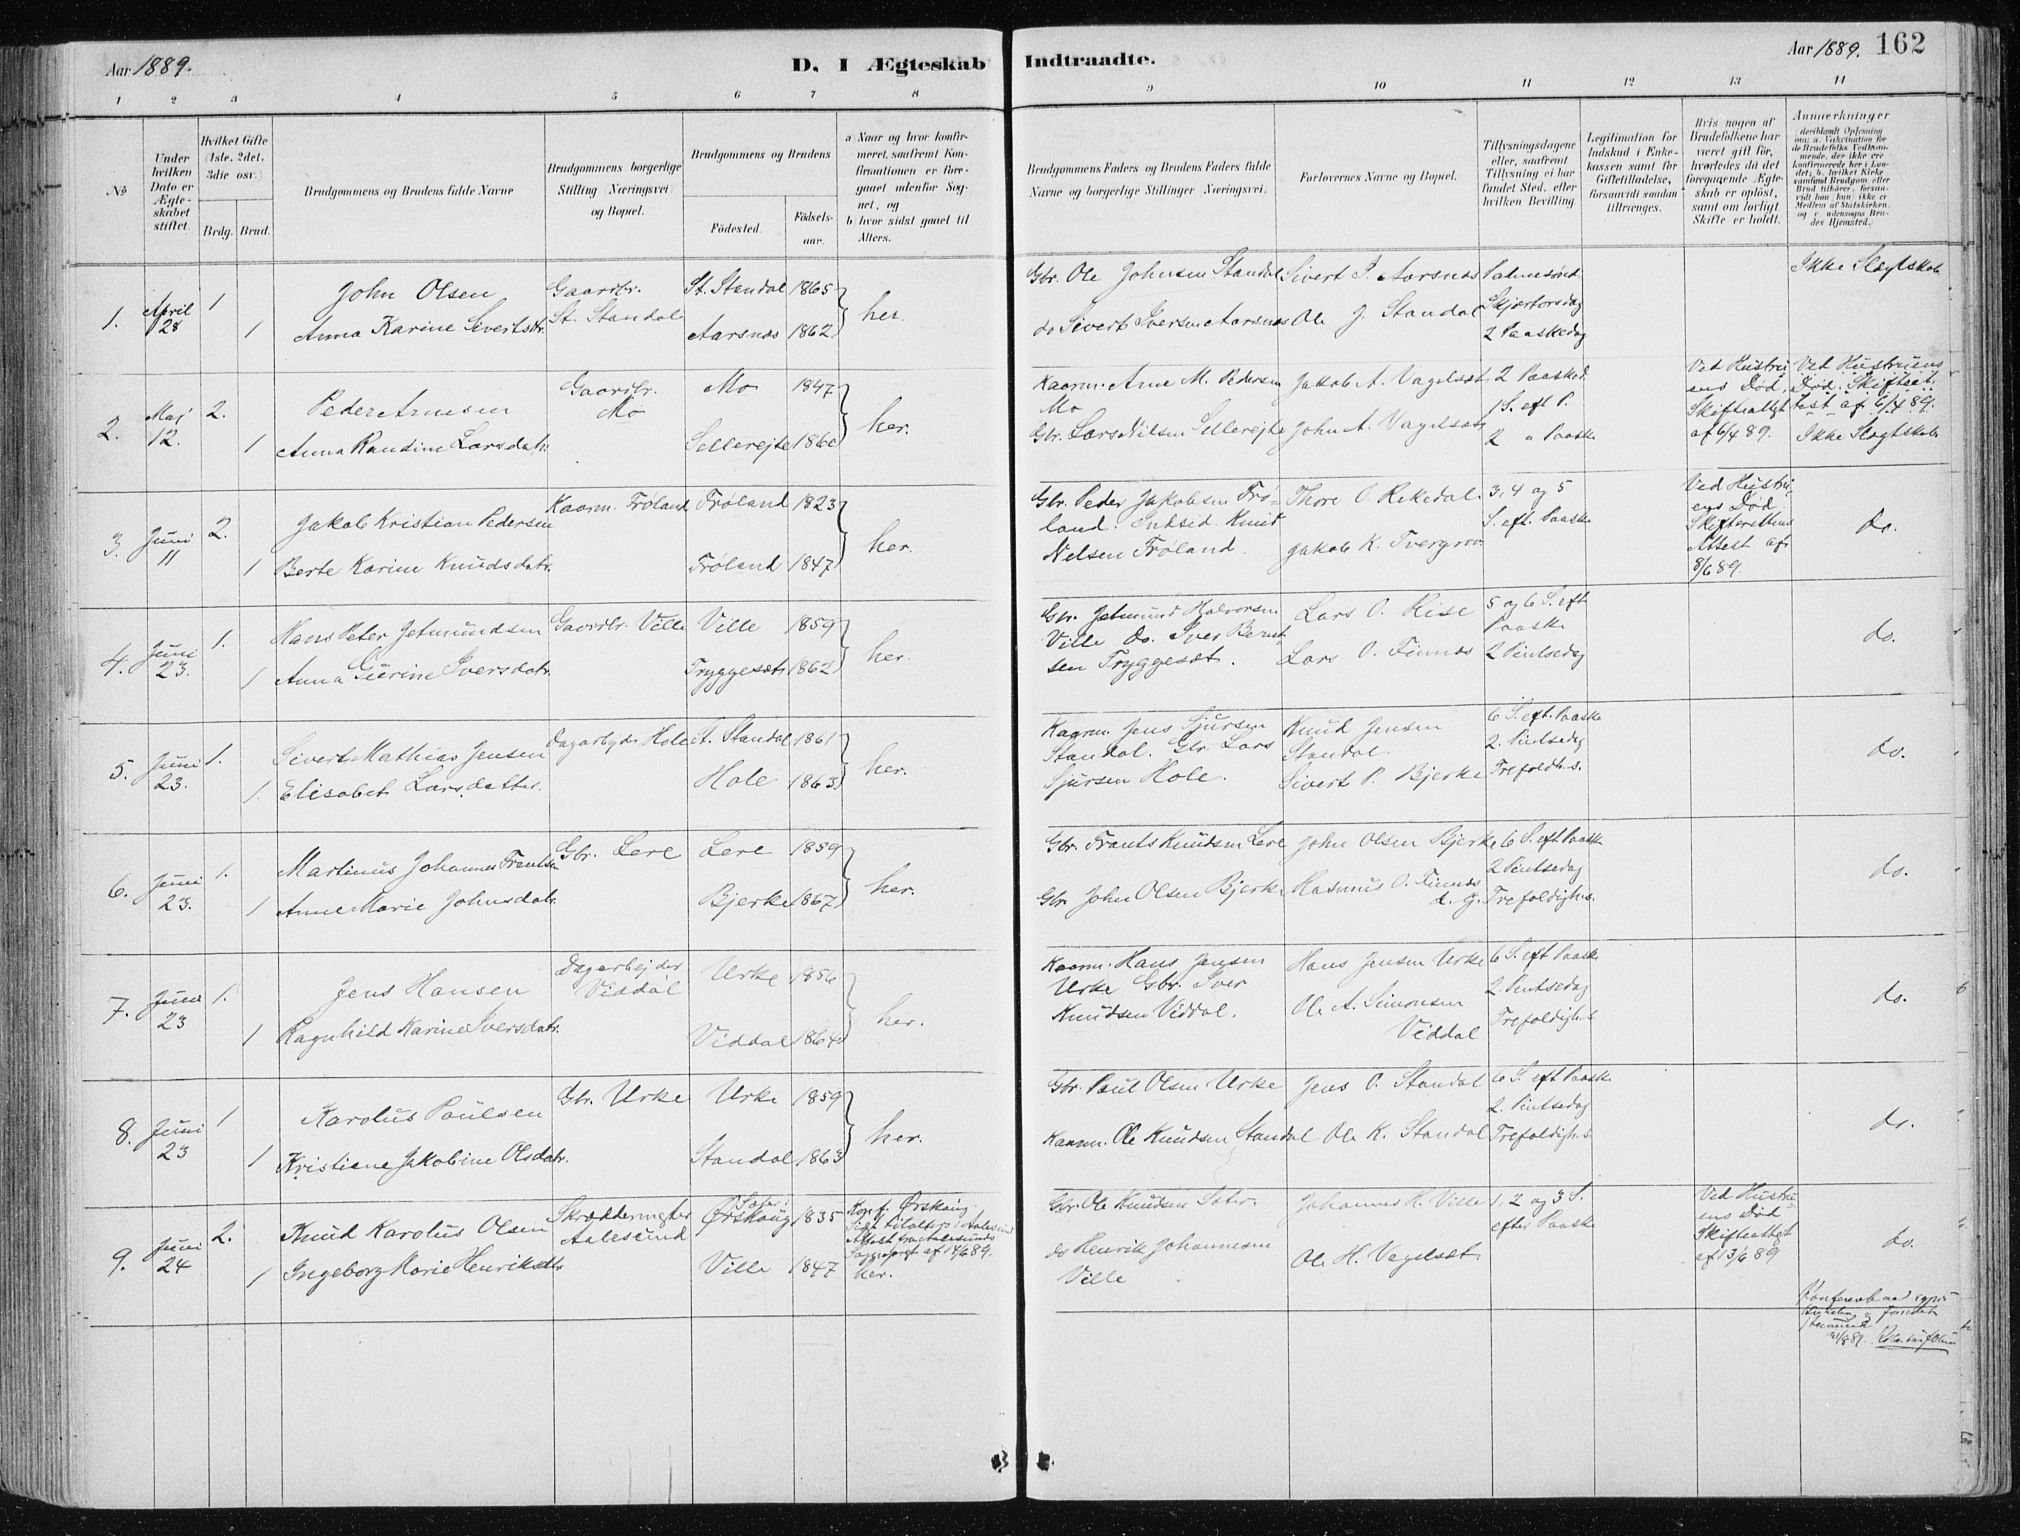 Aar 1889.
D. I Ægteskab Indtraadte.
Aar 1889. 162
1 2 3 4 5 6 7 8 9 10 11 12 13 14
No
Under hvilken Dato er Ægteskabet stiftet.
Hvilket Gifte (1ste, 2det, 3die osv.)
Brdg. Brud.
Brudgommens og Brudens fulde Navne
Brudgommens borgerlige Stilling Næringsvei og Bopæl.
Brudgommens og Brudens
Födested. Födselsaar.
a Naar og hvor konfirmeret, saafremt Konfirmationen er foregaaet udenfor Sognet, og
b hvor sidst gaaet til Alters.
Brudgommens Faders og Brudens Faders fulde Navne og borgerlige Stillinger Næringsvei.
Forlovernes Navne og Bopæl.
Tillysningsdagene eller, saafremt Tillysning ei har fundet Sted, efter hvilken Bevilling
Legitimation for Indskud i Enkekassen samt for Giftetilladelse, forsaavidt saadan tiltrænges.
Hvis nogen af Brudefolkene har været gift för, hvorledes da det foregaaende Ægteskab er oplöst, samt om lovligt Skifte er holdt.
Anmerkninger
1. April 28 1 John Olsen Gaardbr. St. Standal St. Standal 1865 her. Gbr. Ole Johnsen Standal Sivert P. Aarsnæs Palmesönd. Ikke Slægtskab
1 Anna Karine Sivertsdtr. Aarsnæs 1862 do Sivert Iversen Aarsnæs Ole J. Standal Skjærtorsdag
2 Paaskedag
2. Maj 12. 2. Peder Arnesen Gaardbr. Mo Mo 1847 her. Kaarm. Arne M. Pedersen Mo Jakob A. Vagelsæt 2 Paasked. Ved Hustruens Död. Skifteattest af 6/4 89. Ved Hustruens Död. Skifteattest af 6/4 89.
1 Anna Randine Larsdatr. Sellerejte 1860 Gbr. Lars Nilsen Sellerejte John A. Vagelsæt 1 S. eft P. 2 " Paaske Ikke Slægtskab
3. Juni 11 2. Jakob Kristian Pedersen Kaarm. Frøland Frøland 1823 her. Gbr. Peder Jakobsen Frøland. Indsid. Knud Nilsen Frøland. Thore O. Rekedal. 3, 4 og 5 S. eft. Paaske Ved Hustruens Död Skifterettens Attest af 8/6 89. do.
1 Berte Karine Knudsdatr. Frøland 1847 Jakob K. Tvergrov
4. Juni 23. 1. Hans Peter Jetmundsen Gaardbr. Ville Ville 1859 her. Gbr. Jetmund Halvorsen Ville do. Iver Berntsen Tryggesæt. Lars O. Rise 5 og 6 S. eft Paaske do.
1 Anna Gurine Iversdatr. Tryggesæt 1862 Lars O. Finnæs 2 Pintsedag
5. Juni 23. 1. Sivert Mathias Jensen Dagarbejd. Hole St. Standal 1861 her. Kaarm. Jens Sjursen Standal. Gbr. Lars Sjursen Hole. Knud Jensen Standal. 6 S. eft. Paaske do.
1. Elisabet Larsdatter. Hole 1863 Sivert P. Bjerke 2. Pintsedag Trefoldh. s.
6. Juni 23. 1. Martinus Johannes Frantsen Gbr. Lere Lere 1859 her. Gbr. Frants Knudsen Lere John Olsen Bjerke 6 S. eft Paaske do.
1 Anne Marie Johnsdatr. Bjerke 1867 Gbr. John Olsen Bjerke Rasmus O. Finnæs d. y. 2 Pintsedag Trefoldigh. s.
7. Juni 23 1. Jens Hansen Dagarbejder Viddal Urke 1856 her. Kaarm. Hans Jensen Urke Gbr. Iver Knudsen Viddal. Hans Jensen Urke 6 S. eft Paaske do.
1 Ragnhild Karine Iversdatr. Viddal 1864 Ole A. Simonsen Viddal 2. Pintsedag Trefoldigh. s.
8. Juni 23 1 Karolus Paulsen Gbr. Urke Urke 1859 her. Gbr. Paul Olsen Urke Jens O. Standal 6 S. eft Paaske do.
1 Kristiane Jakobine Olsdatr. Standal 1863 Kaarm. Ole Knudsen Standal Ole K. Standal 2. Pintsedag Trefoldigh. s.
9. Juni 24 2. Knud Karolus Olsen Skræddermester Aalesund Ørskoug 1835 Konf. Ørskoug. Gbr. Ole Knudsen Sæter. Johannes H. Ville 1, 2 og 3 S. efter Paaske Ved Hustruens Död Skifteattest af 13/6 89 do.
1 Ingeborg Marie Henriksdtr. Ville 1847 her. do Henrik Johannesen Ville Ole H. Vagelsæt.